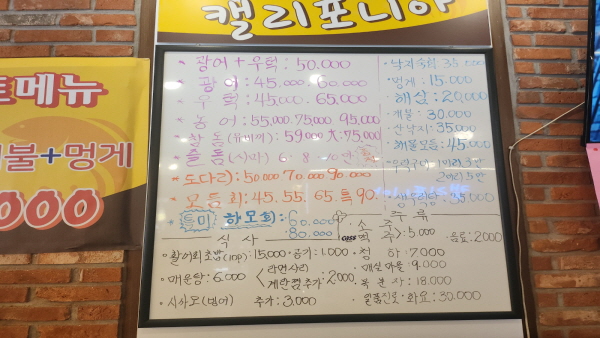 캘리포니아
메뉴
불+멍게
000
* 광어+우럭: 50.000
* 광어: 45.000 60.000
* 우럭: 45.000. 65.000
* 농어: 55,000 75,000 95,000
59.000 大:75,000
6·8·10만
* 도다리: 50.000 70.000 90.000
* 모듬회: 45. 55. 65. 특 90.
하모회: 60.000
80.000
· 낙지숙회 35.000
· 멍게: 15.000
· 해삼: 20,000
· 개불: 30.000
· 산낙지: 35.000
· 해물모듬: 45.000
1마리 3만
2마리 5만
35.000
식사
· 활어회초밥(10p): 15,000 · 공기: 1,000
· 매운탕: 6.000 < 라면사리
계란찜 추가 > 2,000
· 시사모(열어) 추가: 3.000
주류
소주
맥주 > 5.000 음료: 2000
· 청하: 7000
· 매실마을: 9,000
· 복분자: 18.000
· 일품진로 · 화요: 30.000